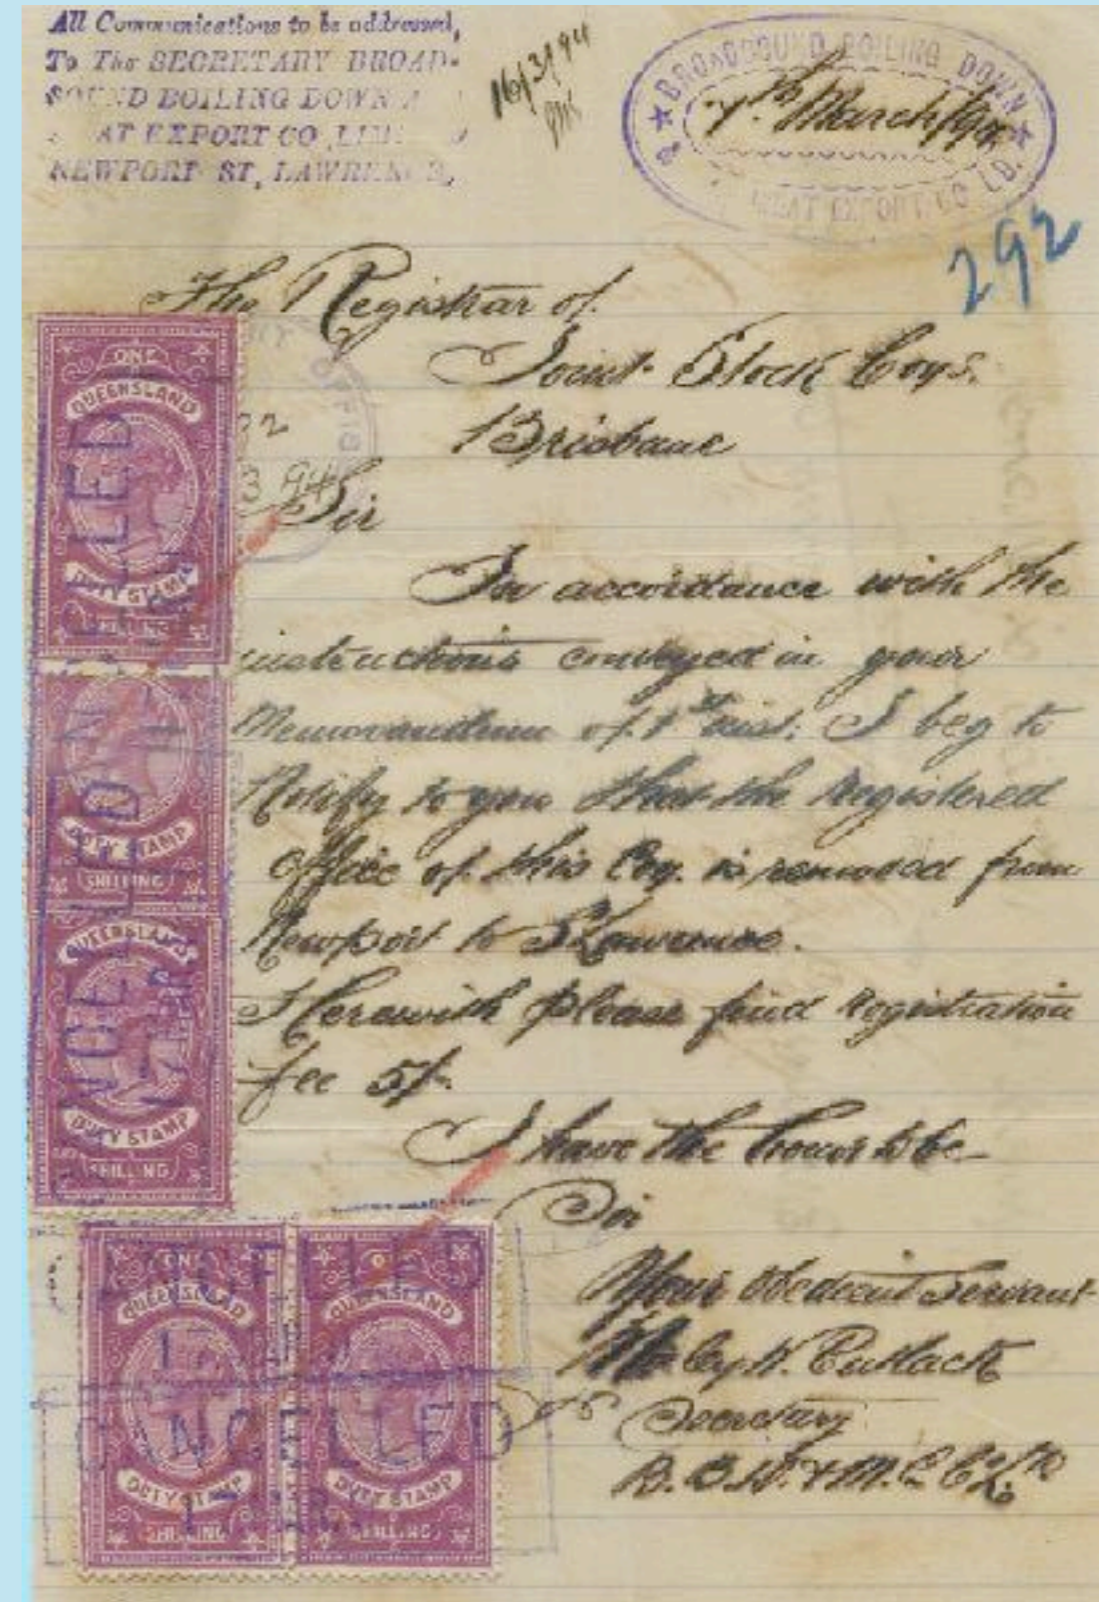 All Communications to be addressed,
To The SECRETARY BROAD-
SOUND BOILING DOWN &
MEAT EXPORT CO, LIMITED
NEWPORT ST, LAWRENCE,
16/3/94
BROADSOUND BOILING DOWN
7th March/94
& MEAT EXPORT CO LD.
292
The Registrar of
Joint Stock Coys.
Brisbane
Sir
In accordance with the
instructions conveyed in your
Memorandum of 1st inst: I beg to
Notify to you that the registered
Office of this Coy. is removed from
Newport to St Lawrence.
Herewith please find registration
fee 5/-
I have the honor to be
Sir
Your Obedient Servant
Secretary
B. B. D. & M. E. Co Ld
ONE
QUEENSLAND
DUTY STAMP
SHILLING
DUTY STAMP
SHILLING
QUEENSLAND
DUTY STAMP
SHILLING
CANCELLED
ONE
QUEENSLAND
DUTY STAMP
SHILLING
ONE
QUEENSLAND
DUTY STAMP
SHILLING
CANCELLED